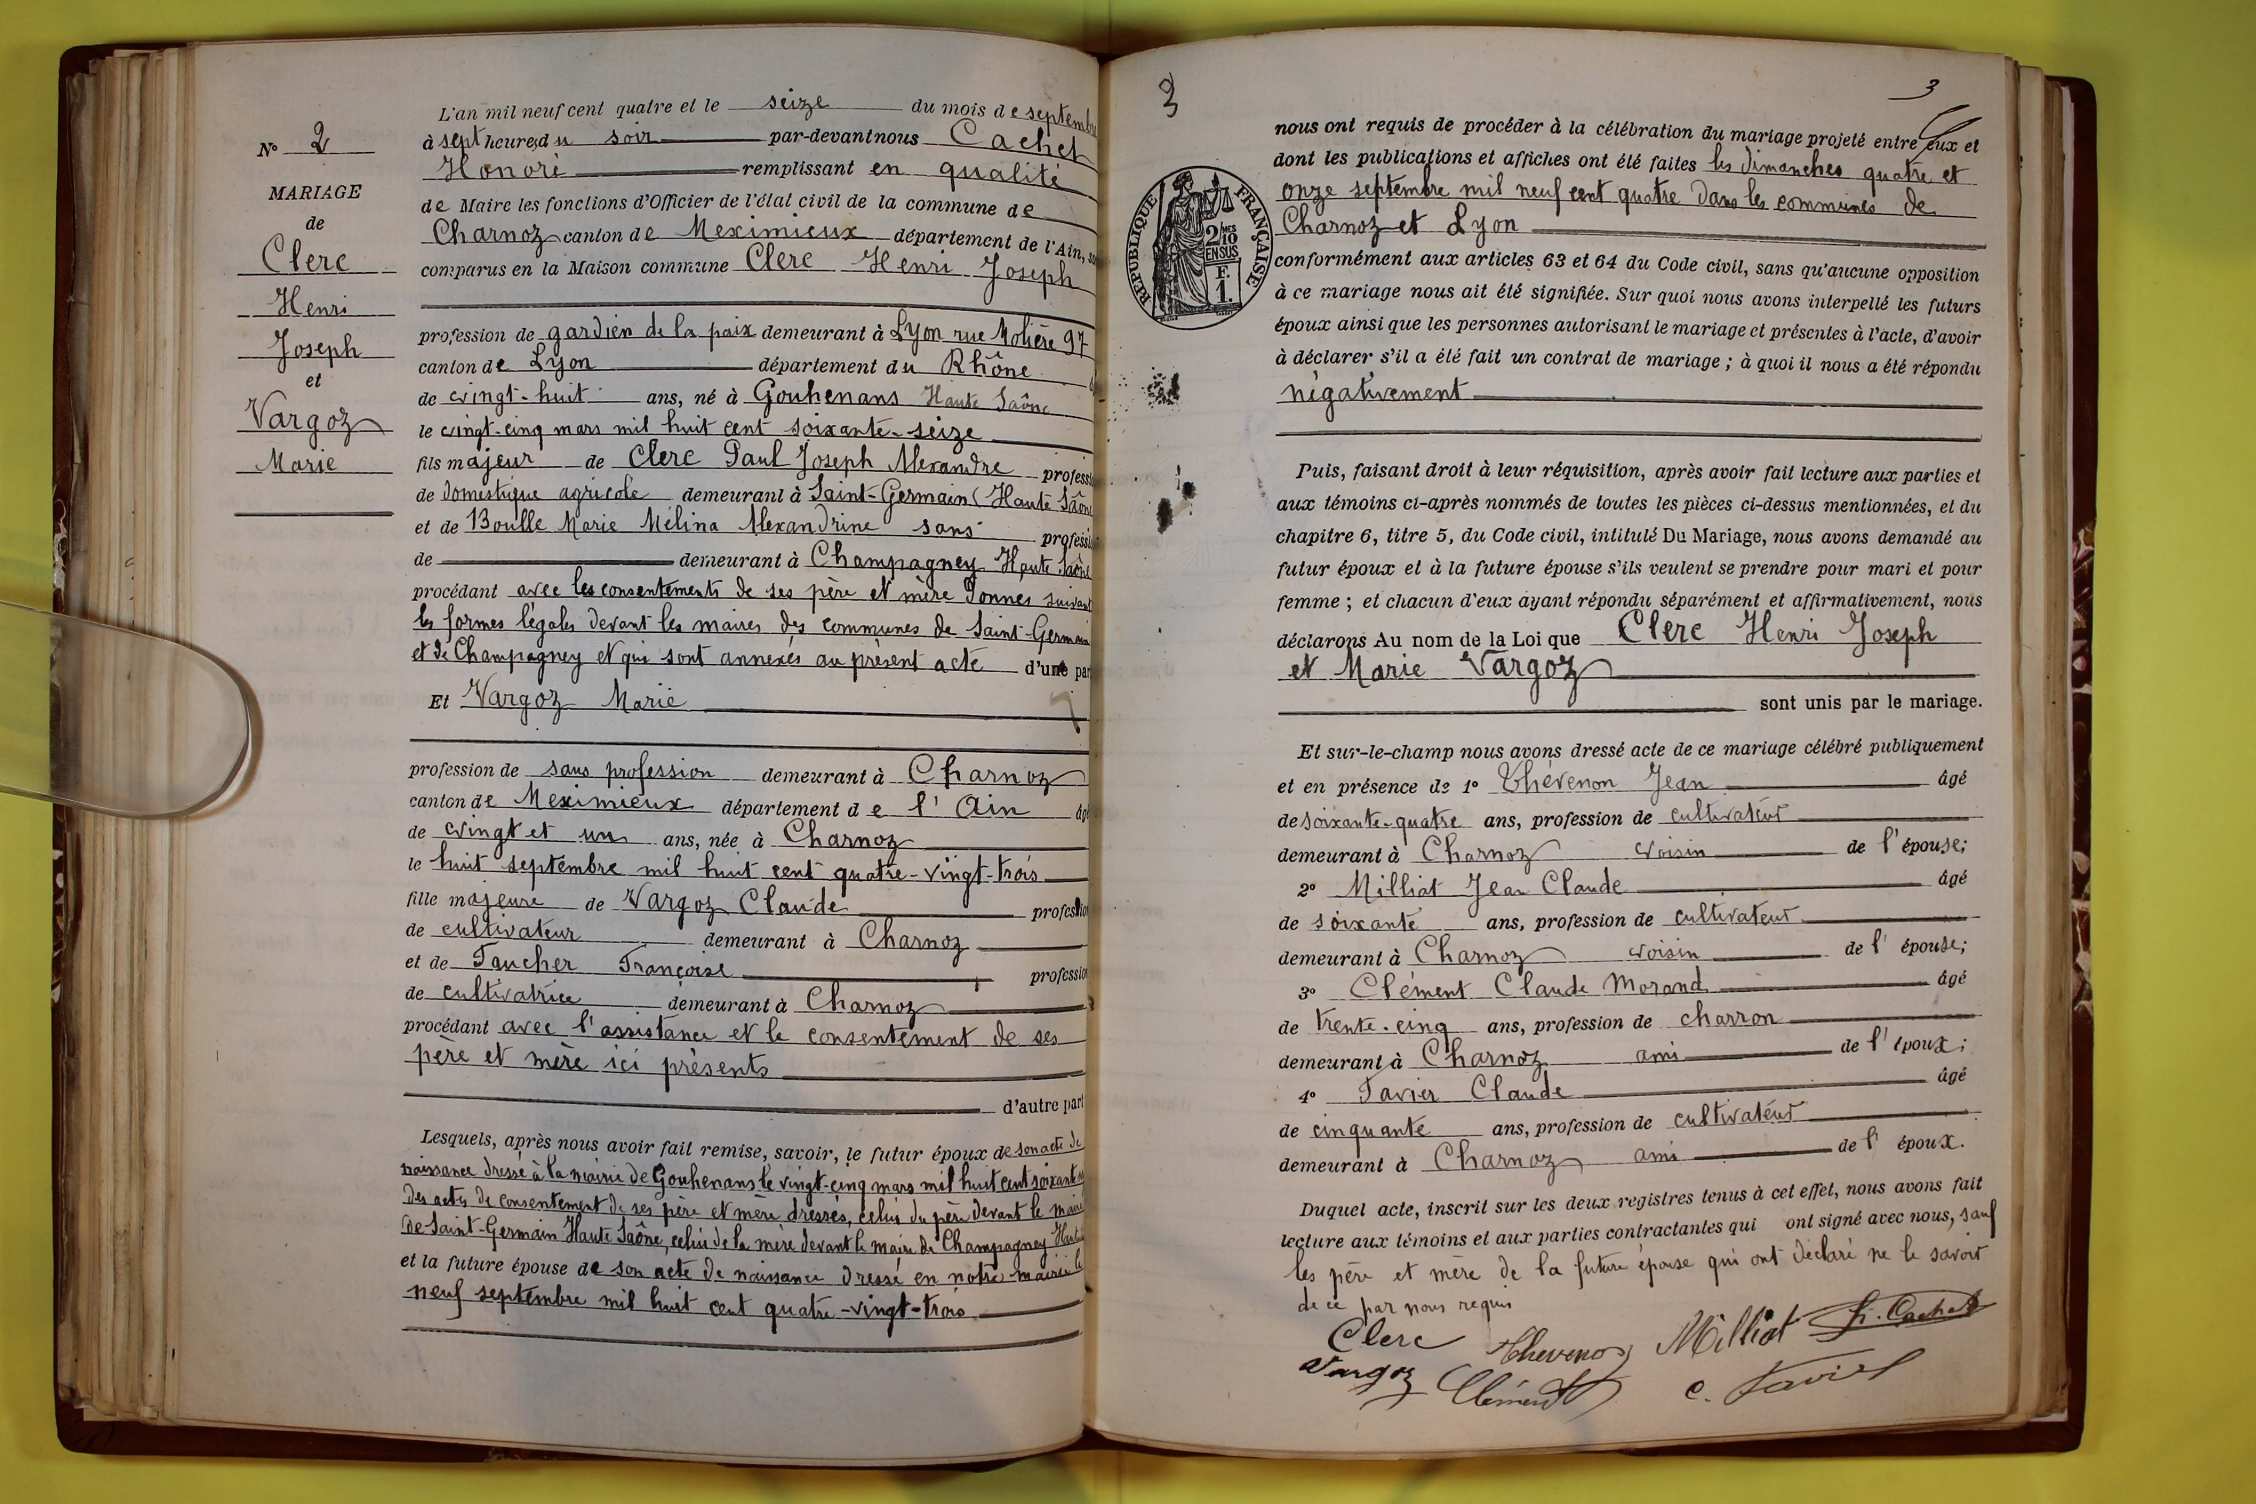 N° 2
MARIAGE
de
Clerc
Henri
Joseph
et
Vargoz
Marie
L'an mil neuf cent quatre et le seize du mois de septembre
à sept heures du soir par-devant nous Cachet
Honoré remplissant en qualité
de Maire les fonctions d'Officier de l'état civil de la commune de
Charnoz canton de Meximieux département de l'Ain,
comparus en la Maison commune Clerc Henri Joseph
profession de gardien de la paix demeurant à Lyon rue Molière 97
canton de Lyon département du Rhône
de vingt-huit ans, né à Gouhenans Haute Saône
le vingt-cinq mars mil huit cent soixante-seize
fils majeur de Clerc Paul Joseph Alexandre profession
de domestique agricole demeurant à Saint-Germain (Haute Saône
et de Boulle Marie Mélina Alexandrine sans profession
de demeurant à Champagney Haute Saône
procédant avec les consentements de ses père et mère donnés suivant
les formes légales devant les maires des communes de Saint-Germain
et de Champagney et qui sont annexés au présent acte d'une part
Et Vargoz Marie
profession de sans profession demeurant à Charnoz
canton de Meximieux département de l'Ain âgé
de vingt et un ans, née à Charnoz
le huit septembre mil huit cent quatre-vingt-trois
fille majeure de Vargoz Claude profession
de cultivateur demeurant à Charnoz
et de Faucher Françoise profession
de cultivatrice demeurant à Charnoz
procédant avec l'assistance et le consentement de ses
père et mère ici présents
d'autre part
Lesquels, après nous avoir fait remise, savoir, le futur époux de son acte de
naissance dressé à la mairie de Gouhenans le vingt-cinq mars mil huit cent soixante
des actes de consentement de ses père et mère dressés, celui du père devant le maire
de Saint-Germain Haute Saône, celui de la mère devant le maire de Champagney Haute
et la future épouse de son acte de naissance dressé en notre mairie le
neuf septembre mil huit cent quatre-vingt-trois
3
3
RÉPUBLIQUE FRANÇAISE
2/10MES
EN SUS
F.
1.
nous ont requis de procéder à la célébration du mariage projeté entre eux et
dont les publications et affiches ont été faites les dimanches quatre et
onze septembre mil neuf cent quatre dans les communes de
Charnoz et Lyon
conformément aux articles 63 et 64 du Code civil, sans qu'aucune opposition
à ce mariage nous ait été signifiée. Sur quoi nous avons interpellé les futurs
époux ainsi que les personnes autorisant le mariage et présentes à l'acte, d'avoir
à déclarer s'il a été fait un contrat de mariage ; à quoi il nous a été répondu
négativement
Puis, faisant droit à leur réquisition, après avoir fait lecture aux parties et
aux témoins ci-après nommés de toutes les pièces ci-dessus mentionnées, et du
chapitre 6, titre 5, du Code civil, intitulé Du Mariage, nous avons demandé au
futur époux et à la future épouse s'ils veulent se prendre pour mari et pour
femme ; et chacun d'eux ayant répondu séparément et affirmativement, nous
déclarons Au nom de la Loi que Clerc Henri Joseph
et Marie Vargoz
sont unis par le mariage.
Et sur-le-champ nous avons dressé acte de ce mariage célébré publiquement
et en présence de 1° Thévenon Jean âgé
de soixante-quatre ans, profession de cultivateur
demeurant à Charnoz voisin de l'épouse;
2° Milliat Jean Claude âgé
de soixante ans, profession de cultivateur
demeurant à Charnoz voisin de l'épouse;
3° Clément Claude Morand âgé
de trente-cinq ans, profession de charron
demeurant à Charnoz ami de l'époux;
4° Favier Claude âgé
de cinquante ans, profession de cultivateur
demeurant à Charnoz ami de l'époux.
Duquel acte, inscrit sur les deux registres tenus à cet effet, nous avons fait
lecture aux témoins et aux parties contractantes qui ont signé avec nous, sauf
les père et mère de la future épouse qui ont déclaré ne le savoir
de ce par nous requis
Clerc Thevenon Milliat H. Cachet
Vargoz Clément C. Favier